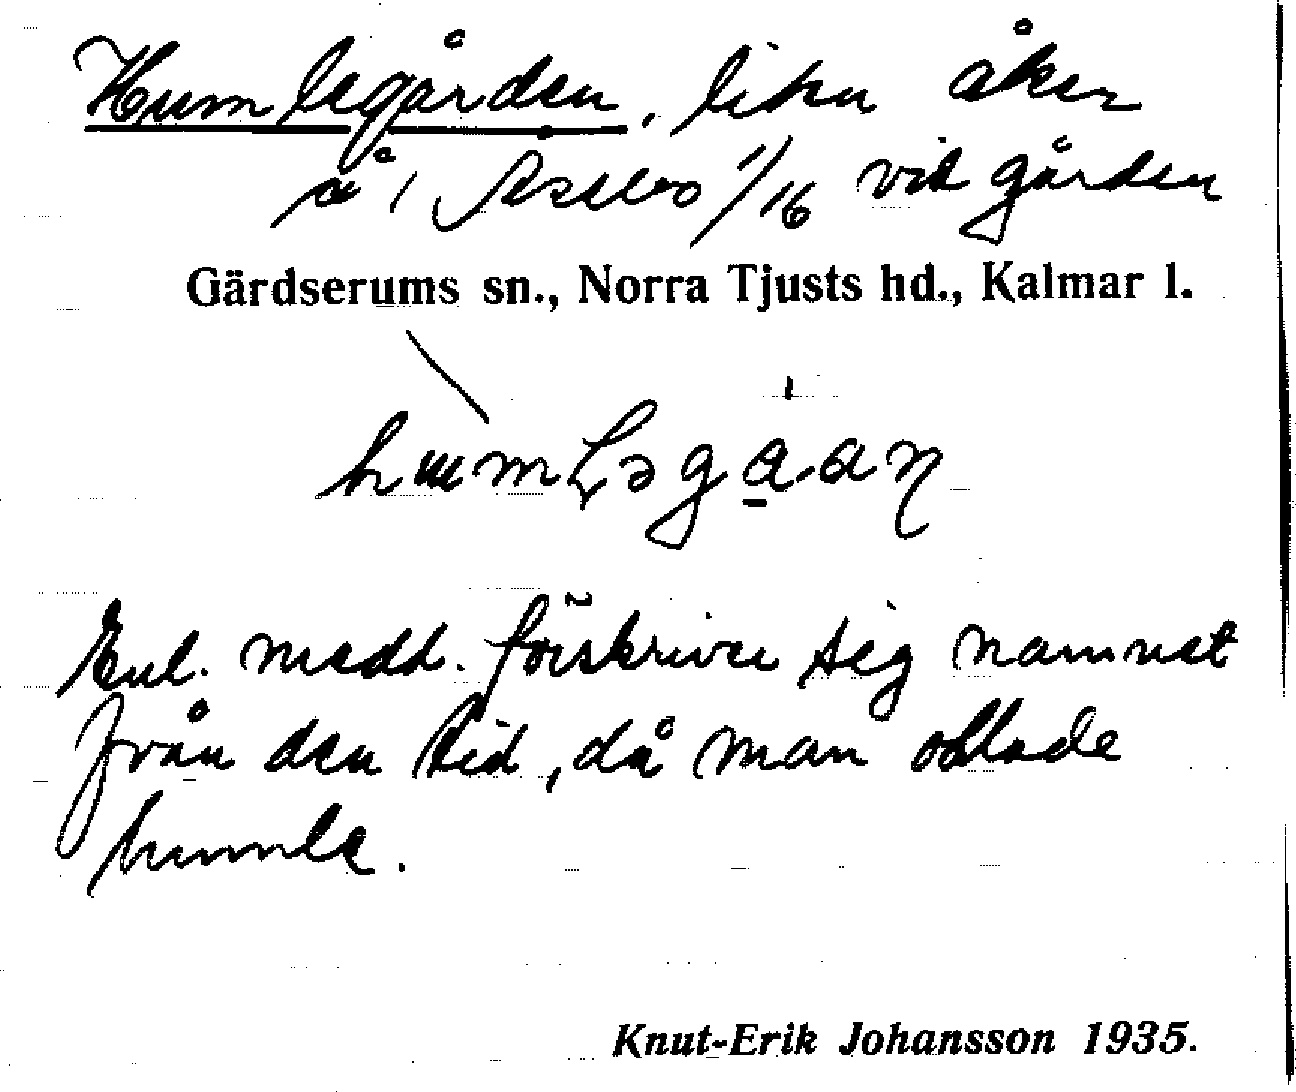 Humlegården, liten åker
på 1/16 vid gården
Gärdserums sn., Norra Tjusts hd., Kalmar l.
Enl. medd. förskriver sig namnet
från den tid, då man odlade
humle.
Knut-Erik Johansson 1935.